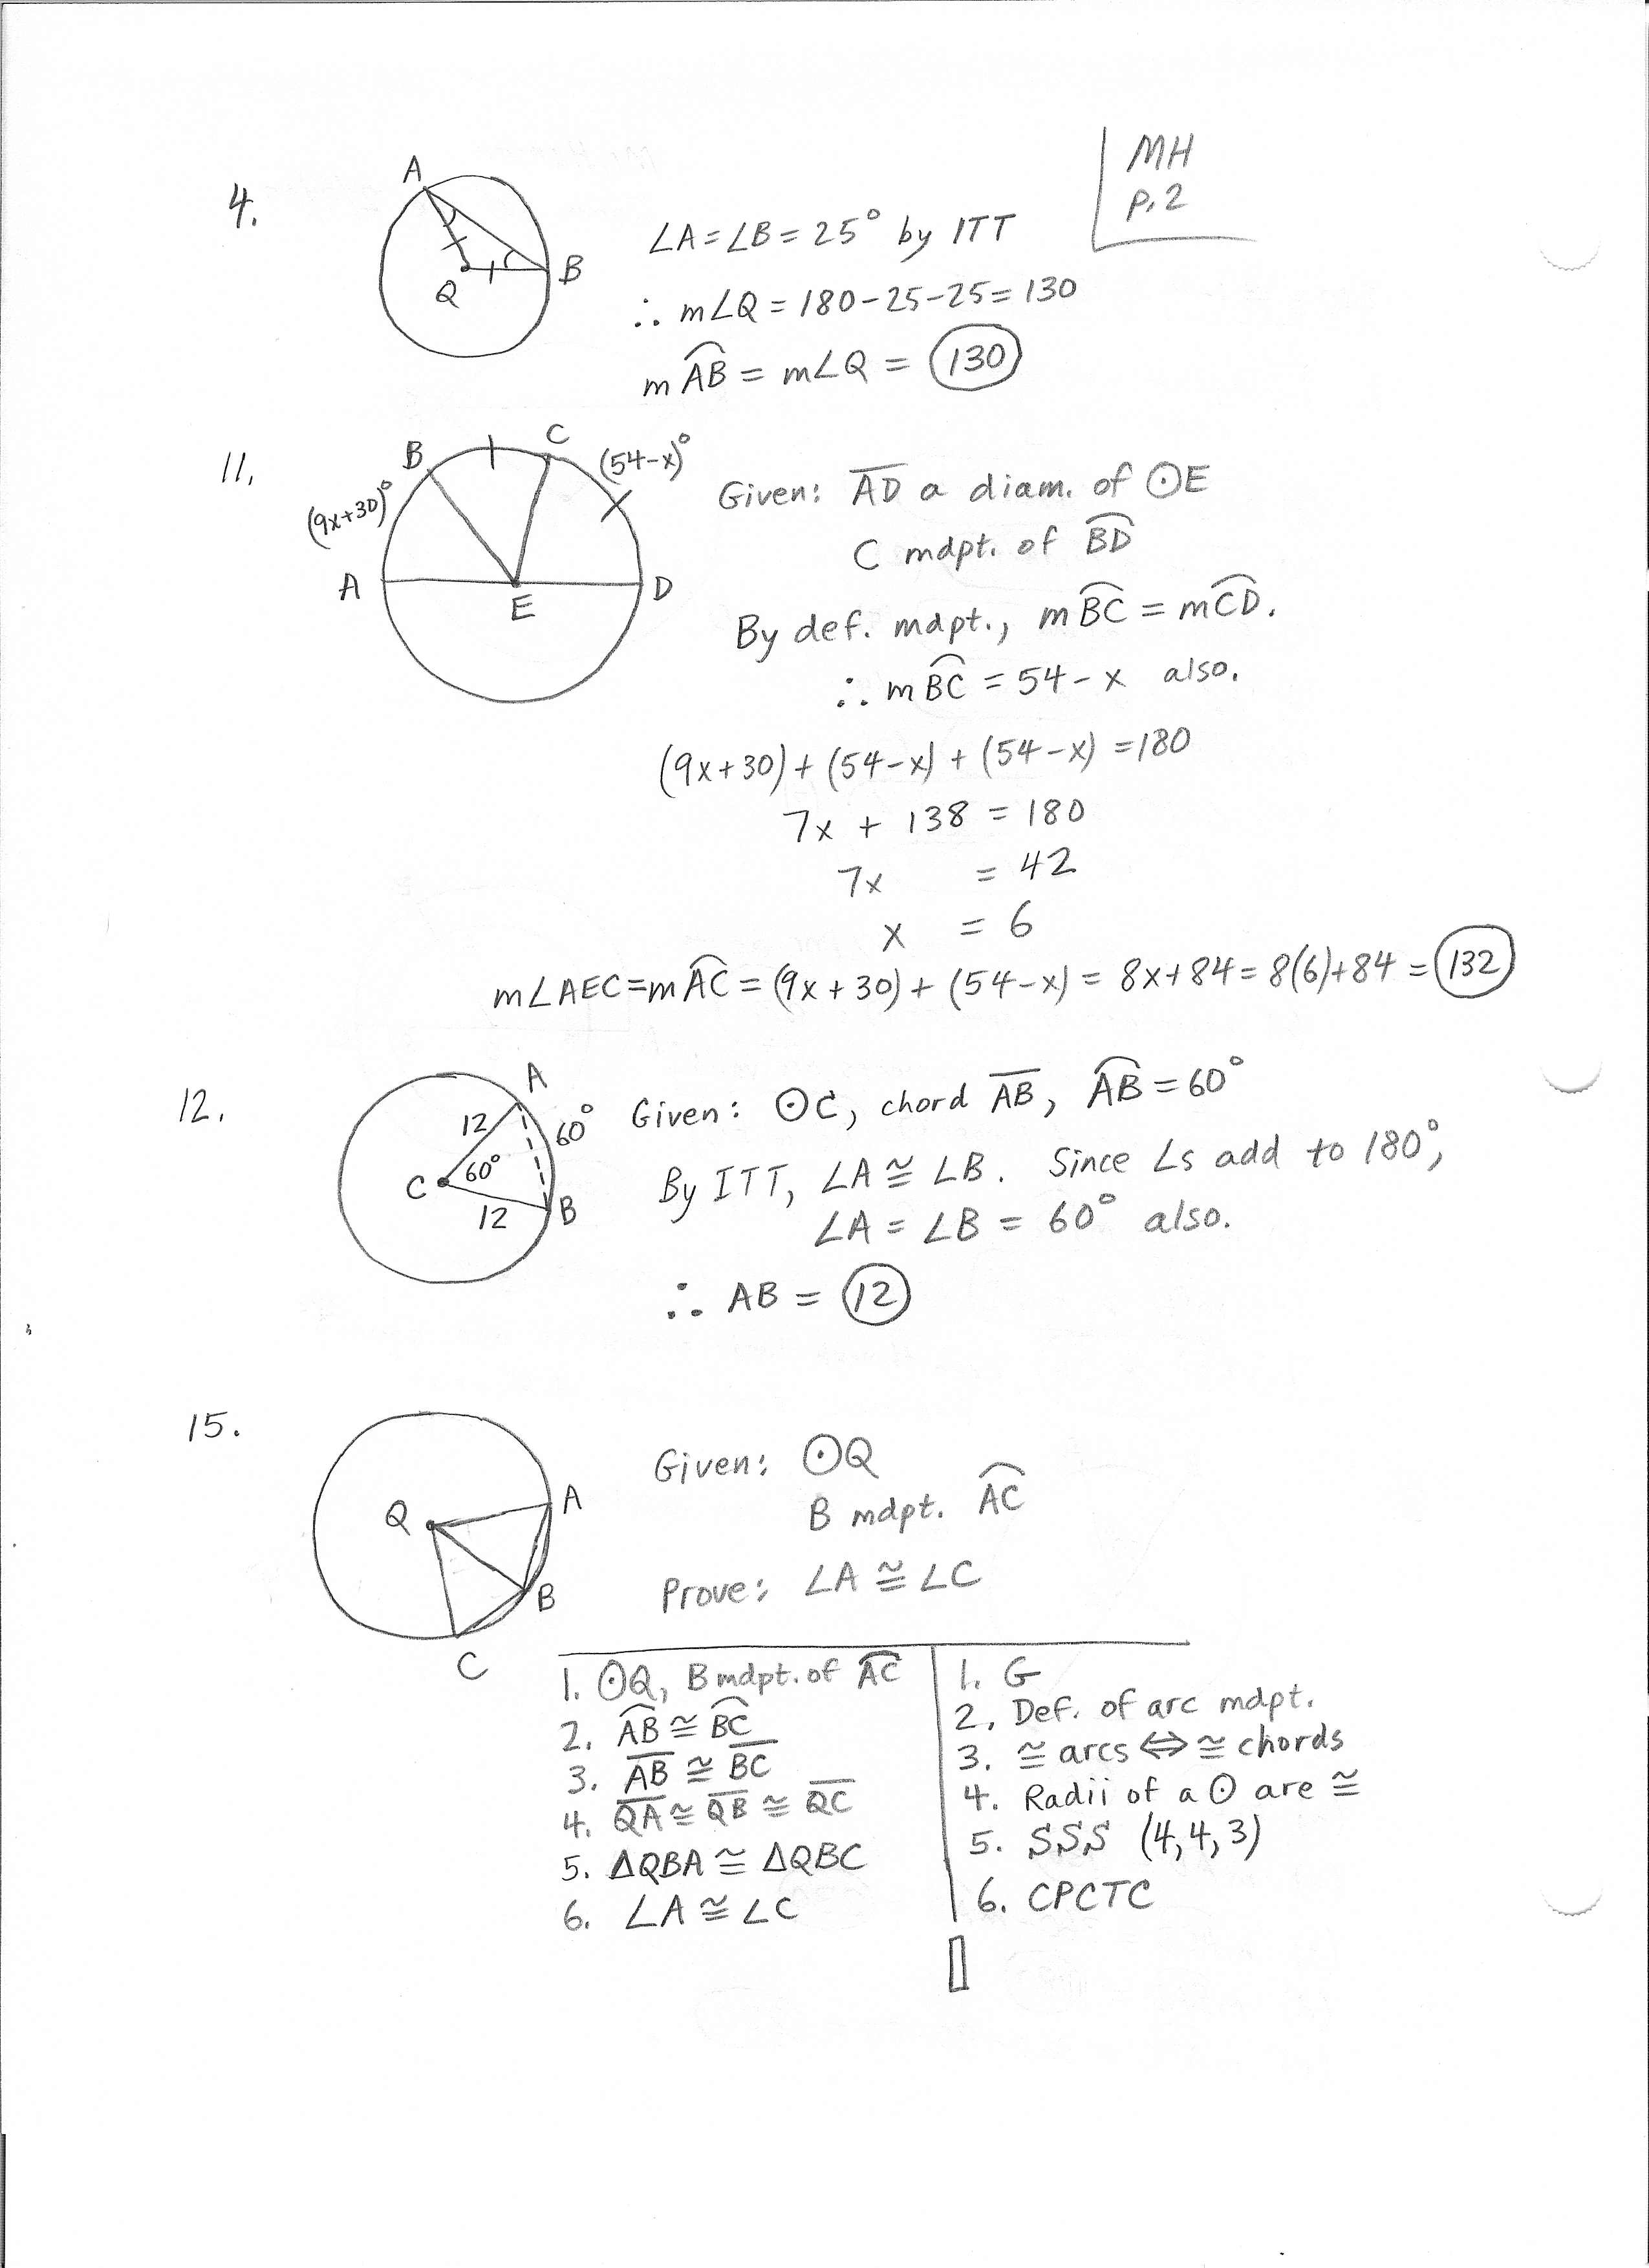 MH
p.2
4.
A
Q
B
∠A = ∠B = 25° by ITT
∴ m∠Q = 180 - 25 - 25 = 130
m\overset{⌢}{AB} = m∠Q = 130
11.
B
C
(54-x)°
(9x+30)°
A
E
D
Given: \overline{AD} a diam. of ⊙E
C mdpt. of \overset{⌢}{BD}
By def. mdpt., m\overset{⌢}{BC} = m\overset{⌢}{CD}.
∴ m\overset{⌢}{BC} = 54 - x also.
(9x+30) + (54-x) + (54-x) = 180
7x + 138 = 180
7x = 42
x = 6
m∠AEC = m\overset{⌢}{AC} = (9x+30) + (54-x) = 8x+84 = 8(6)+84 = 132
12.
A
12
60°
60°
C
12
B
Given: ⊙C, chord \overline{AB}, \overset{⌢}{AB} = 60°
By ITT, ∠A ≅ ∠B. Since ∠s add to 180°,
∠A = ∠B = 60° also.
∴ AB = 12
15.
Q
A
B
C
Given: ⊙Q
B mdpt. \overset{⌢}{AC}
Prove: ∠A ≅ ∠C
1. ⊙Q, B mdpt. of \overset{⌢}{AC} 1. G
2. \overset{⌢}{AB} ≅ \overset{⌢}{BC} 2. Def. of arc mdpt.
3. \overline{AB} ≅ \overline{BC} 3. ≅ arcs ⇔ ≅ chords
4. \overline{QA} ≅ \overline{QB} ≅ \overline{QC} 4. Radii of a ⊙ are ≅
5. △QBA ≅ △QBC 5. SSS (4,4,3)
6. ∠A ≅ ∠C 6. CPCTC